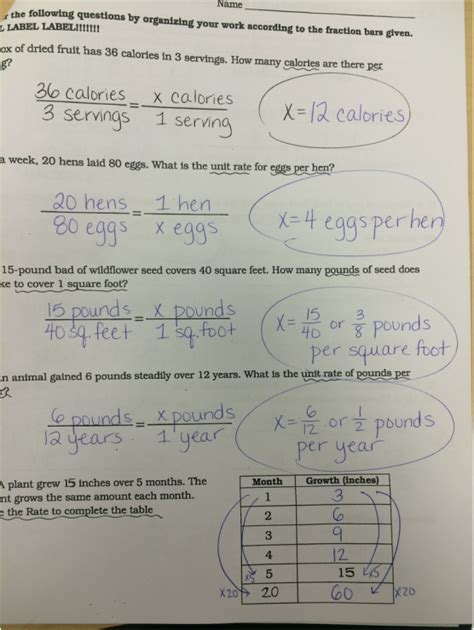 Name
the following questions by organizing your work according to the fraction bars given.
LABEL LABEL!!!!!!!
ox of dried fruit has 36 calories in 3 servings. How many calories are there per
g?
36 calories / 3 servings = x calories / 1 serving
X=12 calories
a week, 20 hens laid 80 eggs. What is the unit rate for eggs per hen?
20 hens / 80 eggs = 1 hen / x eggs
X=4 eggs per hen
15-pound bad of wildflower seed covers 40 square feet. How many pounds of seed does
ke to cover 1 square foot?
15 pounds / 40 sq. feet = x pounds / 1 sq. foot
X= 15/40 or 3/8 pounds
per square foot
n animal gained 6 pounds steadily over 12 years. What is the unit rate of pounds per
6 pounds / 12 years = x pounds / 1 year
X= 6/12 or 1/2 pounds
per year
A plant grew 15 inches over 5 months. The
nt grows the same amount each month.
e the Rate to complete the table
Month Growth (inches)
1 3
2 6
3 9
4 12
x5 5 15 x5
x20 20 60 x20